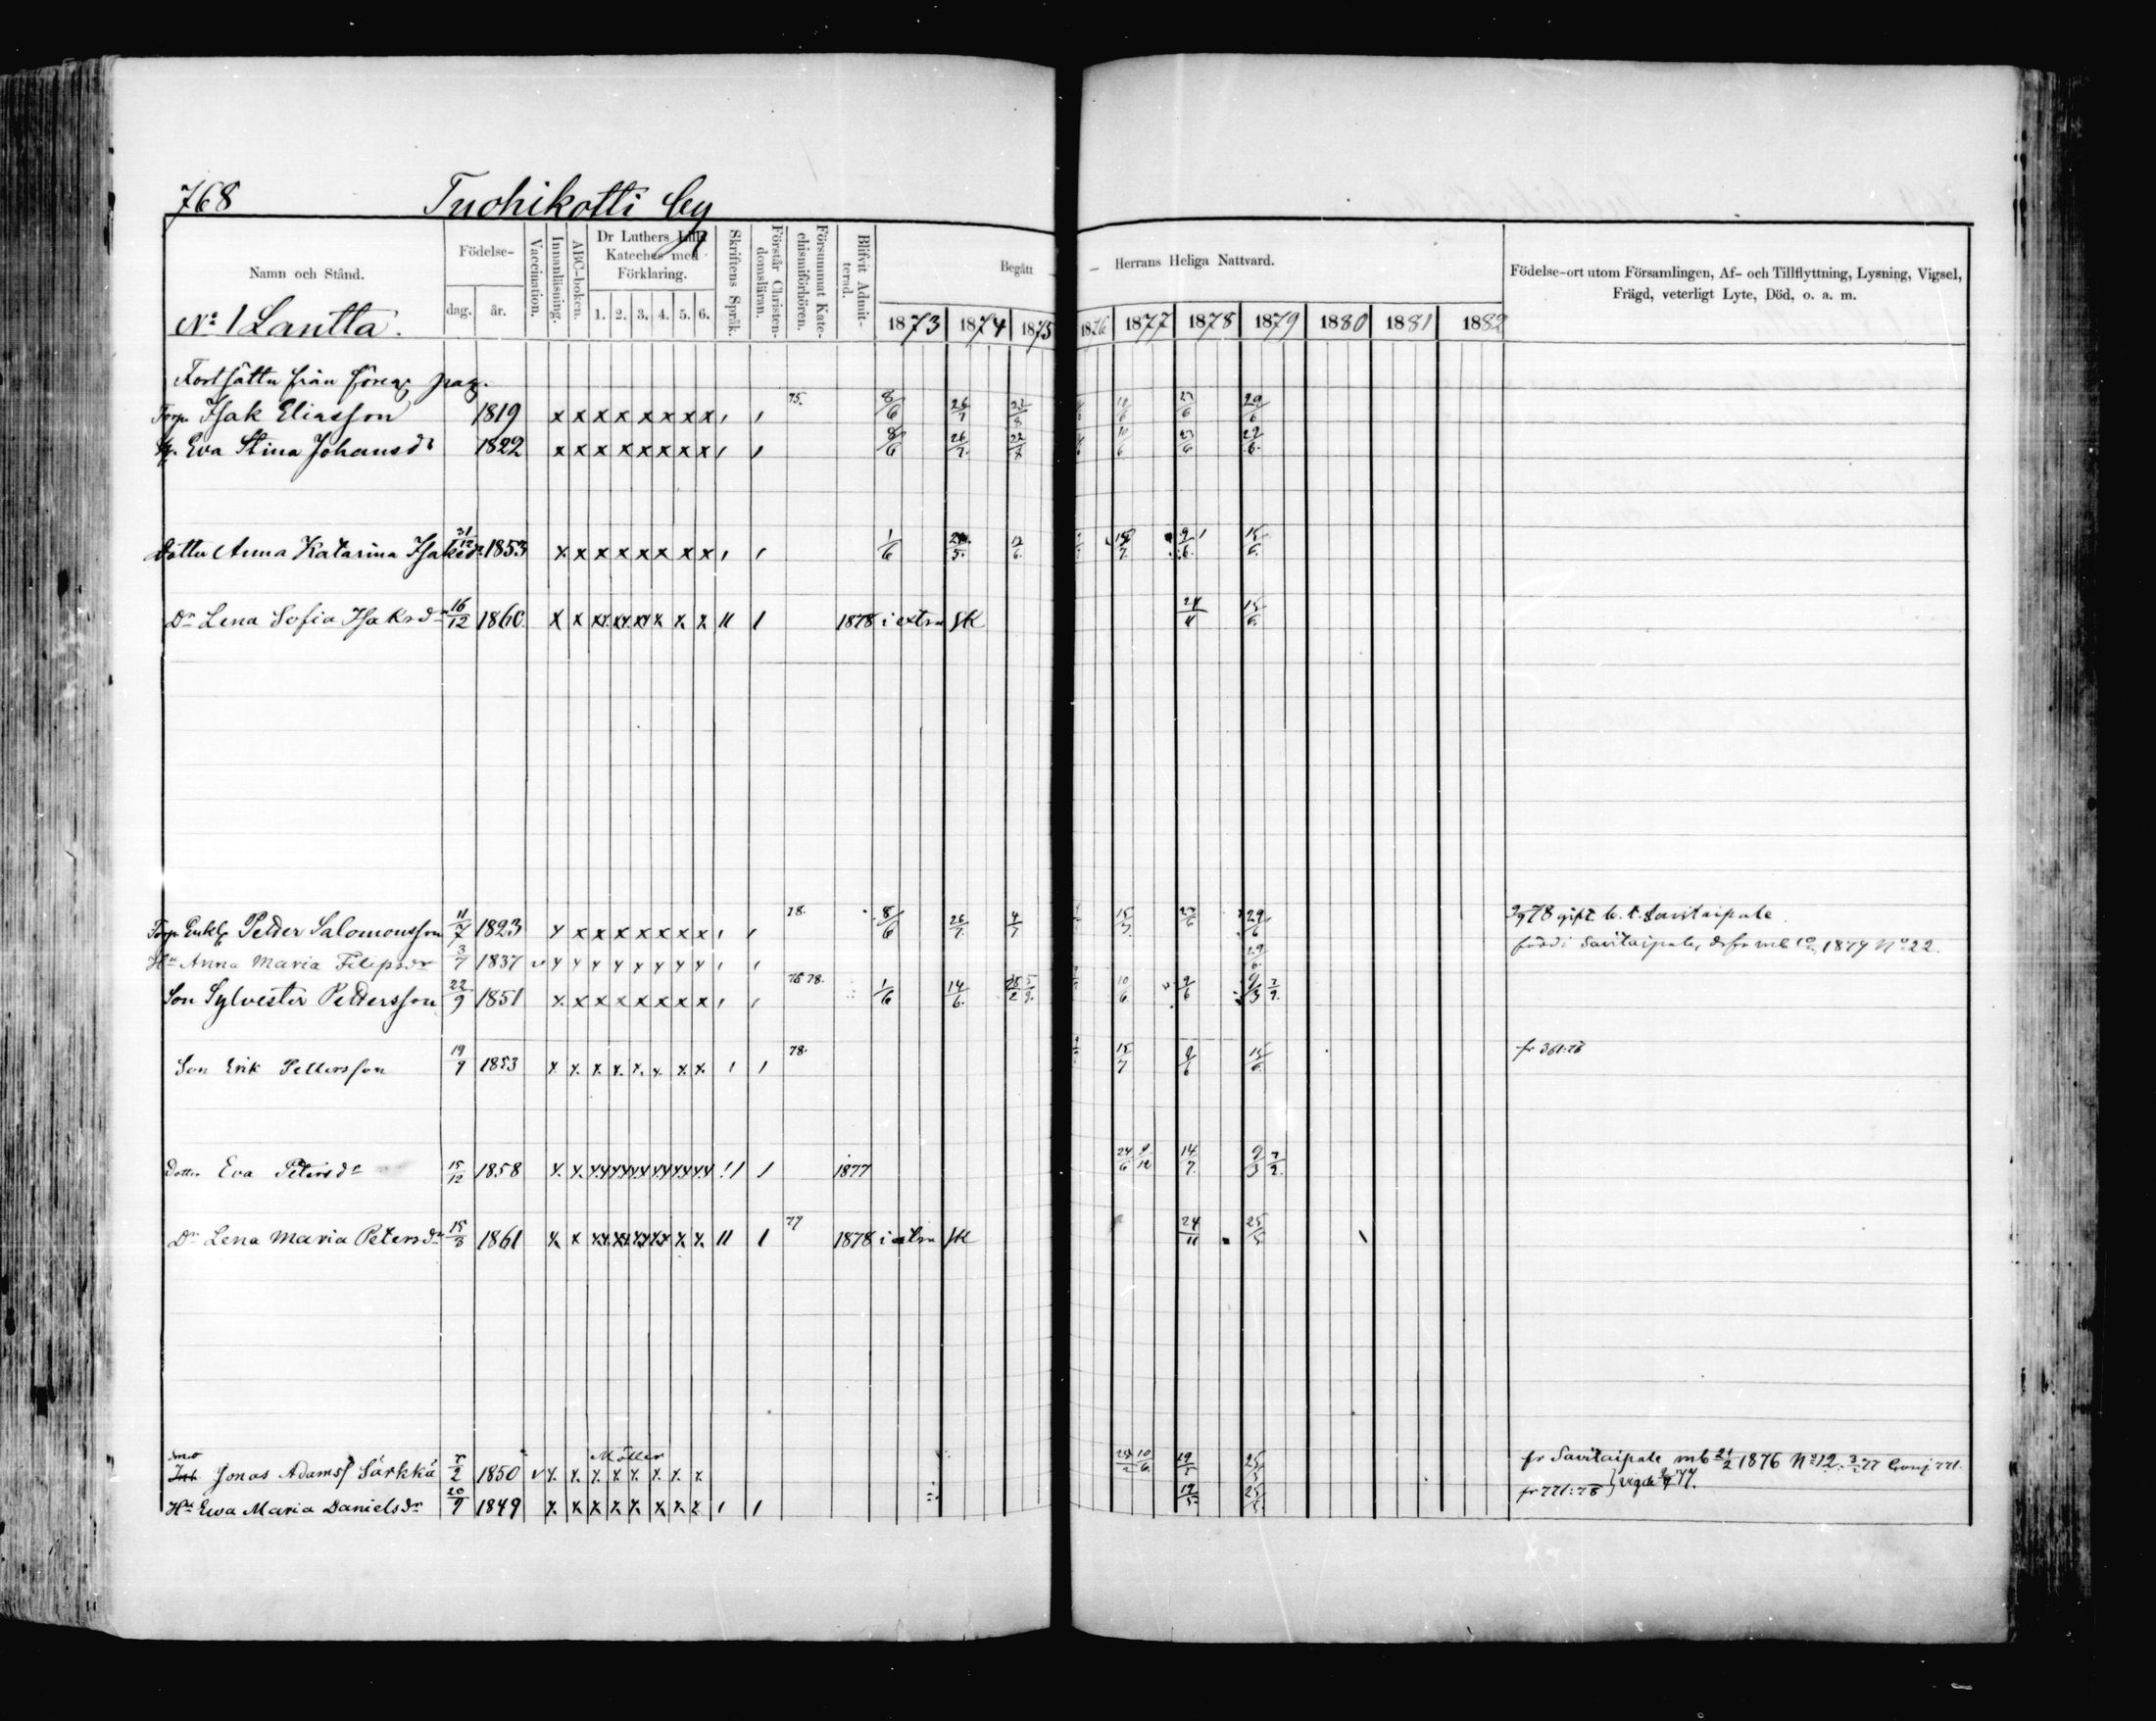 768 Tuohikotti by
Namn och Stånd.
Födelse-
dag. år.
Vaccination.
Innanläsning.
ABC-boken.
Dr Luthers Lilla Kateches med Förklaring.
1. 2. 3. 4. 5. 6.
Skriftens Språk.
Förstår Christendomsläran.
Försummat Katechismiförhören.
Blifvit Admitterad.
Begått — — Herrans Heliga Nattvard.
1873 1874 1875 1876 1877 1878 1879 1880 1881 1882
Födelse-ort utom Församlingen, Af- och Tillflyttning, Lysning, Vigsel,
Frägd, veterligt Lyte, Död, o. a. m.
No 1 Lantta.
Fortsättn från föreg pag.
Torp. Isak Eliasson 1819 x x x x x x x x 75. 8/6 26/7 23/6 29/6
Eva Stina Johansdr 1822 x x x x x x x x 8/6 26/7 22/8 10/6 23/6 29/6
Dotter Anna Katarina Isaksdr 31/12 1853 x x x x x x x x 1/6 9/6 15/6
Dr Lena Sofia Isaksdr 16/12 1860 1878 i extra sk 24/11 15/6
Torp. Enkl Petter Salomonsson 11/7 1823 x x x x x x x x 78. 8/6 26/7 4/7 15/7 29/6 78 gift b. t. Savitaipale
Hu Anna Maria Filipsdr 3/7 1837 29/6 född i Savitaipale, 1879 No 22.
Son Sylvester Pettersson 22/9 1851 x x x x x x x x 76 78. 1/6 14/6 10/6 9/6 9/3 7/9
Son Erik Pettersson 19/9 1853 78. 15/7 9/6 15/6 fr 361:76
Dotter Eva Petersdr 15/12 1858 1877 24/6 9/12 14/7 9/3 7/2
Dr Lena Maria Petersdr 15/3 1861 77 1878 i extra sk 24/11 25/5
Möller
Jonas Adamss Särkkä 1850 19/5 25/5 fr Savitaipale mb 21/2 1876 No 12. 3/2 77 771.
Hu Ewa Maria Danielsdr 20/9 1849 19/5 25/5 fr 771:78 vigde 77.